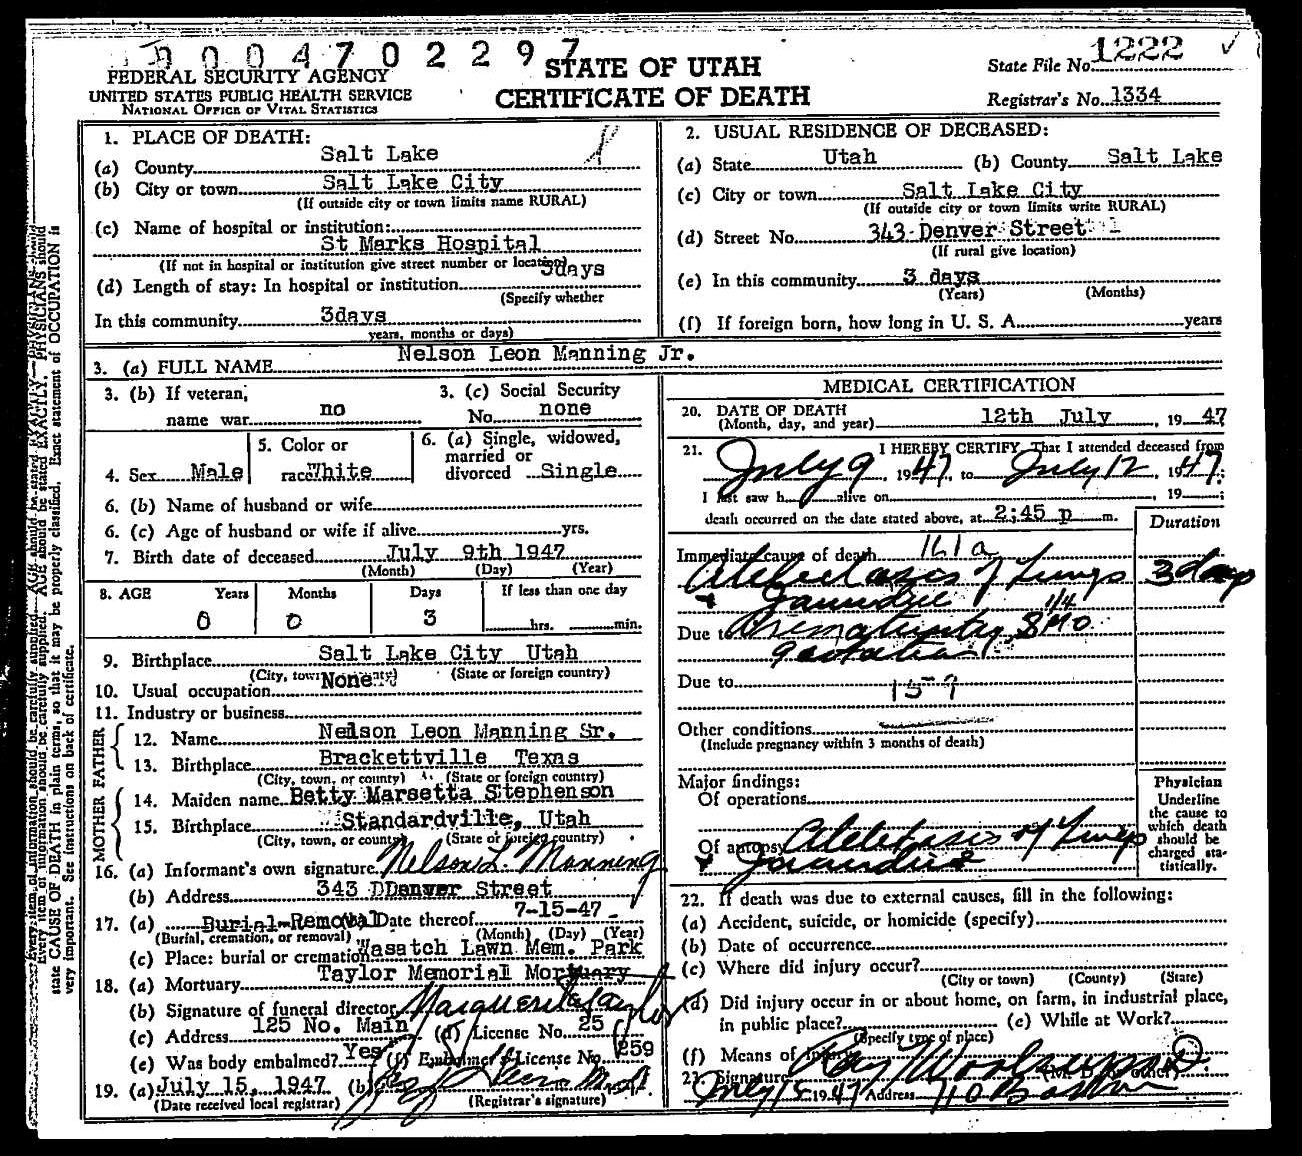 0004702297
FEDERAL SECURITY AGENCY
UNITED STATES PUBLIC HEALTH SERVICE
NATIONAL OFFICE OF VITAL STATISTICS
STATE OF UTAH
CERTIFICATE OF DEATH
State File No. 1222
Registrar's No. 1334
1. PLACE OF DEATH:
(a) County Salt Lake
(b) City or town Salt Lake City
(If outside city or town limits name RURAL)
(c) Name of hospital or institution:
St Marks Hospital
(If not in hospital or institution give street number or location)
(d) Length of stay: In hospital or institution 3days
(Specify whether
In this community 3days
years, months or days)
2. USUAL RESIDENCE OF DECEASED:
(a) State Utah (b) County Salt Lake
(c) City or town Salt Lake City
(If outside city or town limits write RURAL)
(d) Street No. 343 Denver Street
(If rural give location)
(e) In this community 3 days
(Years) (Months)
(f) If foreign born, how long in U. S. A. years
3. (a) FULL NAME Nelson Leon Manning Jr.
3. (b) If veteran,
name war no
3. (c) Social Security
No. none
4. Sex Male
5. Color or
race White
6. (a) Single, widowed,
married or
divorced Single
6. (b) Name of husband or wife
6. (c) Age of husband or wife if alive yrs.
7. Birth date of deceased July 9th 1947
(Month) (Day) (Year)
8. AGE Years Months Days If less than one day
0 0 3 hrs. min.
9. Birthplace Salt Lake City Utah
(City, town, or county) (State or foreign country)
10. Usual occupation None
11. Industry or business
FATHER
12. Name Nelson Leon Manning Sr.
13. Birthplace Brackettville Texas
(City, town, or county) (State or foreign country)
MOTHER
14. Maiden name Betty Marsetta Stephenson
15. Birthplace Standardville, Utah
(City, town, or county) (State or foreign country)
16. (a) Informant's own signature Nelson L. Manning
(b) Address 343 DDenver Street
17. (a) Burial-Removal (b) Date thereof 7-15-47
(Burial, cremation, or removal) (Month) (Day) (Year)
(c) Place: burial or cremation Wasatch Lawn Mem. Park
18. (a) Mortuary Taylor Memorial Mortuary
(b) Signature of funeral director Marguerite Taylor
(c) Address 125 No. Main (d) License No. 25
(e) Was body embalmed? Yes (f) Embalmer's License No. 259
19. (a) July 15, 1947 (b)
(Date received local registrar) (Registrar's signature)
MEDICAL CERTIFICATION
20. DATE OF DEATH
(Month, day, and year) 12th July, 1947
21. I HEREBY CERTIFY That I attended deceased from
July 9, 1947, to July 12, 1947;
I last saw h alive on , 19 ;
death occurred on the date stated above, at 2:45 p m.
Duration
Immediate cause of death 161a
Atelectasis of Lungs 3 days
+ Jaundice
Due to Prematurity, 8 1/4 mo
gestation
Due to 159
Other conditions
(Include pregnancy within 3 months of death)
Major findings:
Of operations
Of autopsy Atelectasis of Lungs
+ Jaundice
Physician
Underline
the cause to
which death
should be
charged sta-
tistically.
22. If death was due to external causes, fill in the following:
(a) Accident, suicide, or homicide (specify)
(b) Date of occurrence
(c) Where did injury occur?
(City or town) (County) (State)
(d) Did injury occur in or about home, on farm, in industrial place,
in public place? (e) While at Work?
(Specify type of place)
(f) Means of Injury
23. Signature Ray Woolsey (M. D. or other)
July 15 1947 Address
state CAUSE OF DEATH in plain terms, so that it may be properly classified. Exact statement of OCCUPATION is
very important. See instructions on back of certificate.